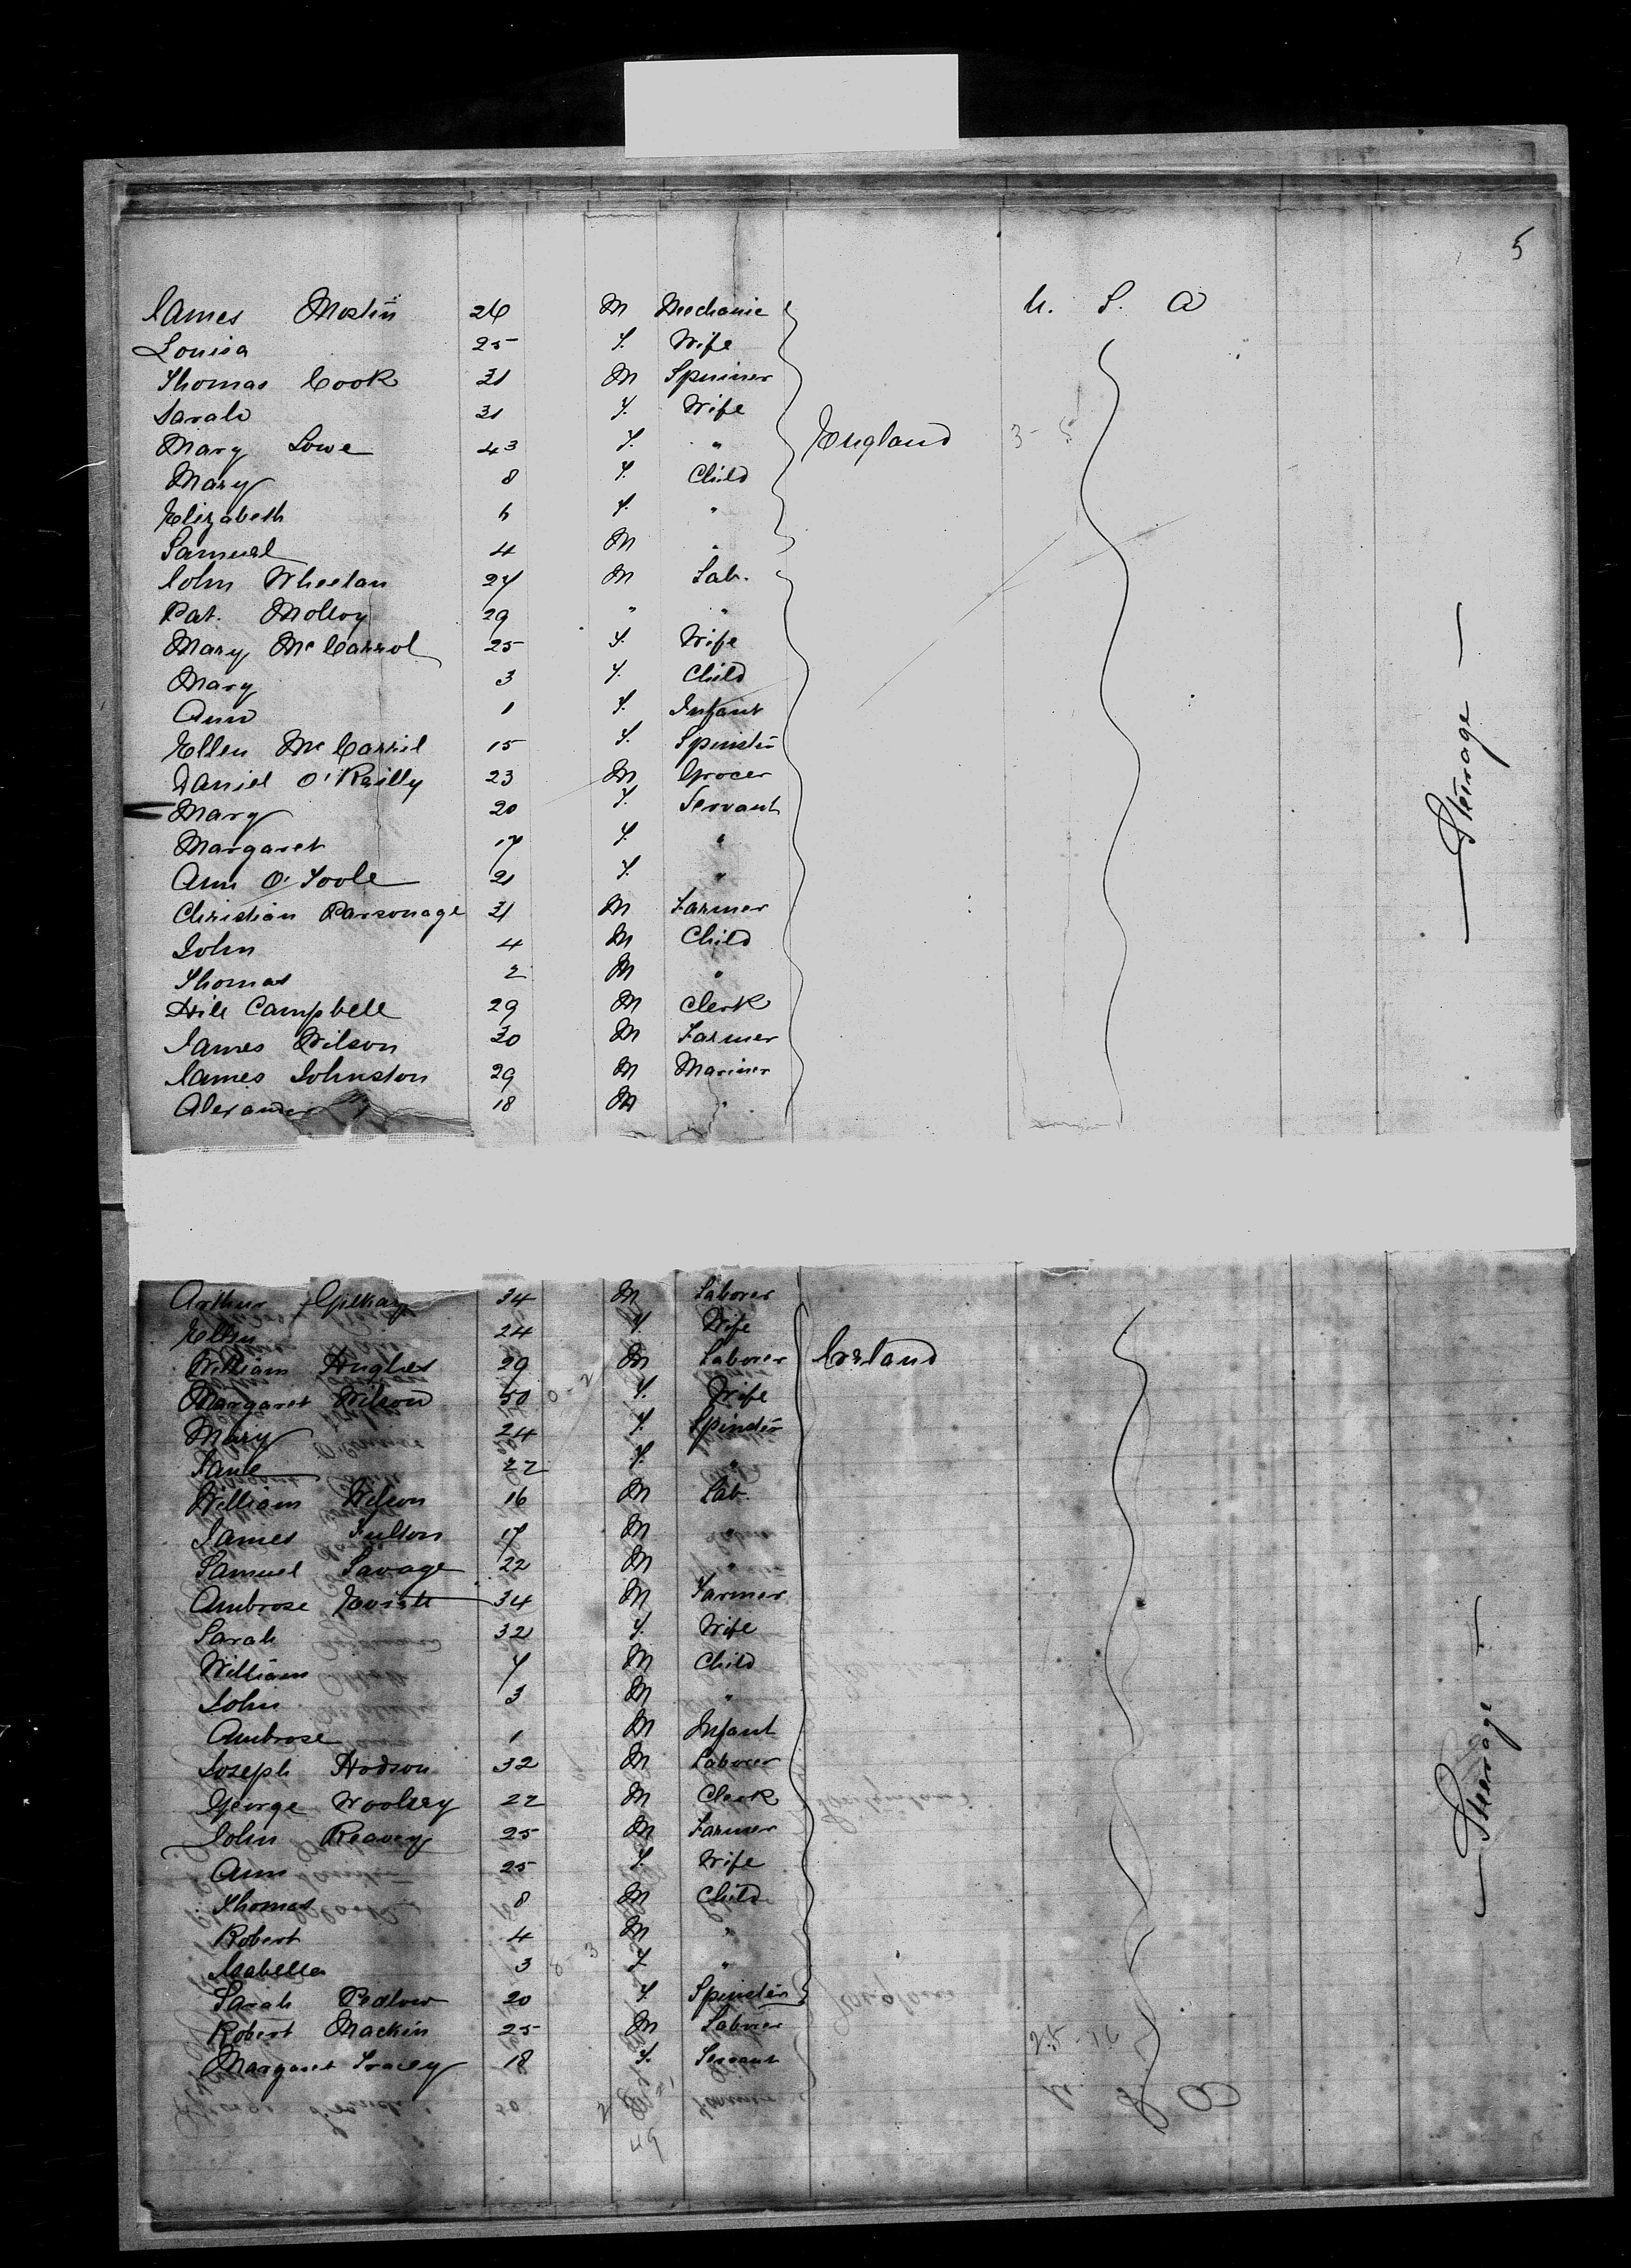 5
James Mostin 26 M Mechanic U. S. A
Louisa 25 F. Wife
Thomas Cook 31 M Spinner
Sarah 31 F. Wife
Mary Lowe 43 F. " England 3-5
Mary 8 F. Child
Elizabeth 6 F. "
Samuel 4 M "
John Wheelan 27 M Lab.
Pat. Molloy 29 " "
Mary McCarrol 25 F. Wife
Mary 3 F. Child
Ann 1 F. Infant
Ellen McCarril 15 F. Spinster
Daniel O'Reilly 23 M Grocer
Mary 20 F. Servant
Margaret 17 F. "
Ann O'Toole 21 F. "
Christian Parsonage 31 M Farmer
John 4 M Child
Thomas 2 M "
Hill Campbell 29 M Clerk
James Wilson 30 M Farmer
James Johnston 29 M Mariner
Alexander 18 M "
Steerage
Arthur Gilkay 34 M Laborer
Ellen 24 F. Wife
William Hughes 29 M Laborer Ireland
Margaret Wilson 50 F. Wife
Mary 24 F. Spinster
Jane 22 F. "
William Wilson 16 M Lab.
James Fulton 17 M
Samuel Savage 22 M "
Ambrose 34 M Farmer
Sarah 32 F. Wife
William 7 M Child
John 3 M "
Ambrose 1 M Infant
Joseph Hodson 32 M Laborer
George Woolsey 22 M Clerk
John Reavey 25 M Farmer
Ann 25 F. Wife
Thomas 8 M Child
Robert 4 M "
Isabella 3 F. "
Sarah Pedlow 20 F. Spinster
Robert Mackin 25 M Laborer
Margaret Tracey 18 F. Servant
Steerage